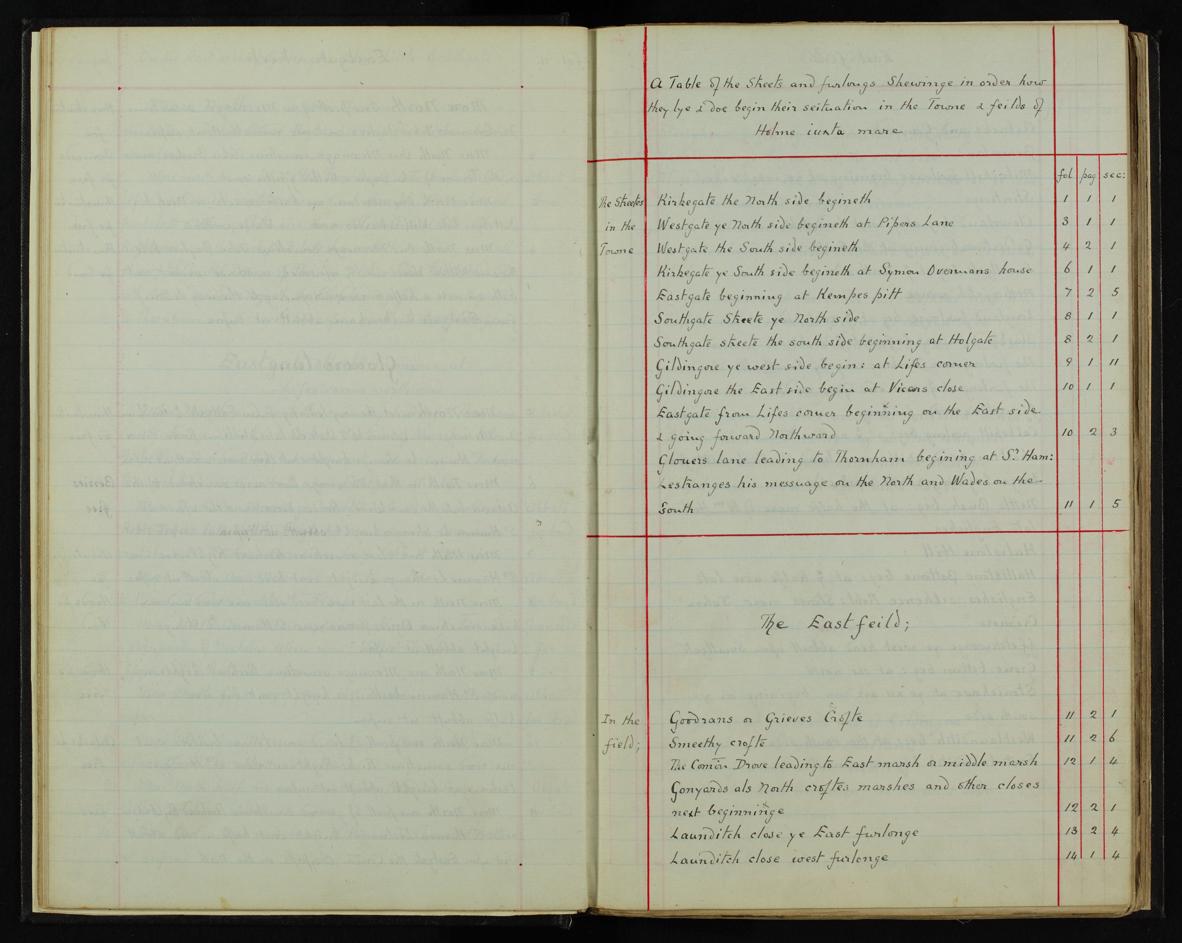 A Table of the Streets and furlongs Shewinge in order how
they lye & doe begin their seituation in the Towne & feilds of
Holme iuxta mare
fol pag sec:
The Streetes Kirkegate the North side begineth 1 1 1
in the Westgate ye North side begineth at Pipers Lane 3 1 1
Towne Westgate the South side begineth 4 2 1
Kirkegate ye South side begineth at Symon Overmans house 6 1 1
Eastgate beginning at Kempes pitt 7 2 5
Southgate Streete ye North side 8 1 1
Southgate streete the south side beginning at Holgate 8 2 1
Gildingore ye west side begin: at Lifes corner 9 1 11
Gildingore the East side begin at Vicars close 10 1 1
Eastgate from Lifes corner beginning on the East side
& going forward Northward 10 2 3
Glouers lane leading to Thornham begining at Sr. Ham:
Lestranges his messuage on the North and Wades on the
South 11 1 5
The Eastfeild;
In the Goodrans or Grieves Crofte 11 2 1
field; Smeethy crofte 11 2 6
The Comōn Drove leading to East marsh or middle marsh 12 1 4
Gonyards als North croftes marshes and other closes
next beginninge 12 2 1
Launditch close ye East furlonge 13 2 4
Launditch close west furlonge 14 1 4